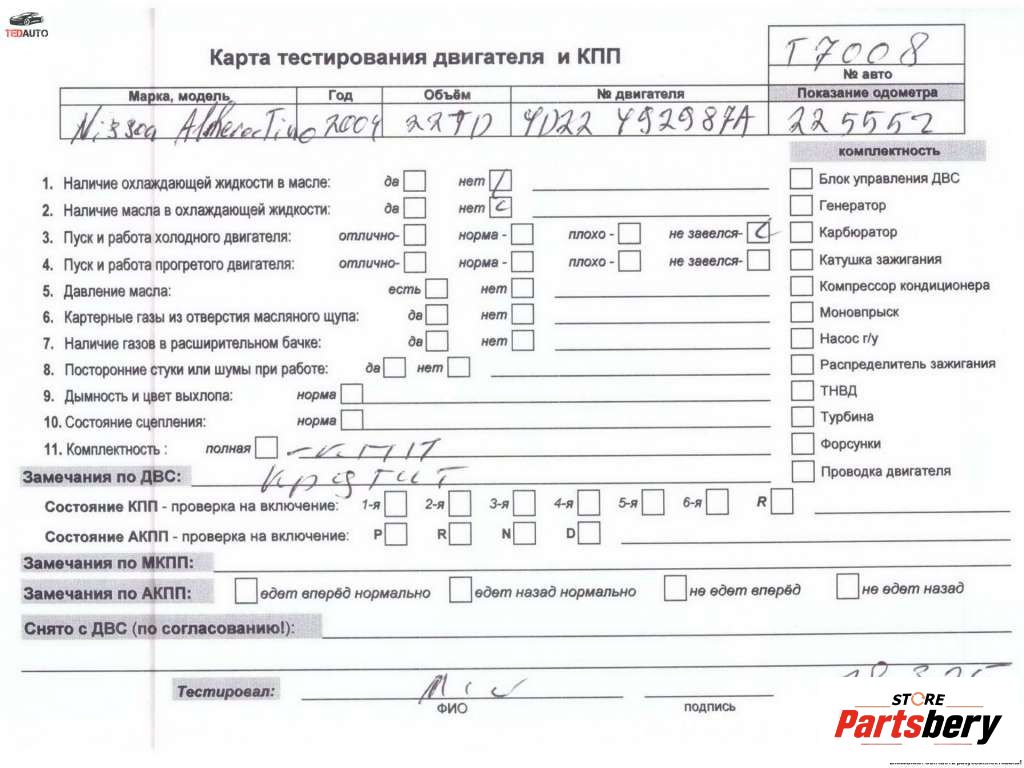 TEDAUTO
Карта тестирования двигателя и КПП
T7008
№ авто
Марка, модель Год Объём № двигателя Показание одометра
Nissan Almera Tino 2004 22TD YD22 492987A 225552
комплектность
1. Наличие охлаждающей жидкости в масле: да нет Блок управления ДВС
2. Наличие масла в охлаждающей жидкости: да нет Генератор
3. Пуск и работа холодного двигателя: отлично- норма - плохо - не завелся- Карбюратор
4. Пуск и работа прогретого двигателя: отлично- норма - плохо - не завелся- Катушка зажигания
5. Давление масла: есть нет Компрессор кондиционера
6. Картерные газы из отверстия масляного щупа: да нет Моновпрыск
7. Наличие газов в расширительном бачке: да нет Насос г/у
8. Посторонние стуки или шумы при работе: да нет Распределитель зажигания
9. Дымность и цвет выхлопа: норма ТНВД
10. Состояние сцепления: норма Турбина
11. Комплектность : полная - КПП Форсунки
Замечания по ДВС: крутит Проводка двигателя
Состояние КПП - проверка на включение: 1-я 2-я 3-я 4-я 5-я 6-я R
Состояние АКПП - проверка на включение: P R N D
Замечания по МКПП:
Замечания по АКПП: едет вперёд нормально едет назад нормально не едет вперёд не едет назад
Снято с ДВС (по согласованию!):
Тестировал:
ФИО подпись
STORE
Partsbery